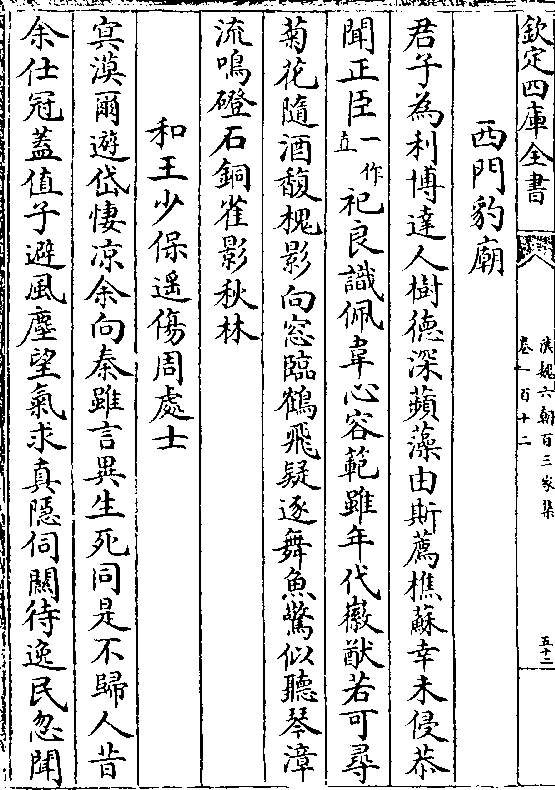 欽定四庫全書
漢魏六朝百三家集
卷一百十二
五十二
西門豹廟
君子為利博達人樹德深蘋藻由斯薦樵蘇幸未侵恭
聞正臣一作直祀良識佩韋心容範雖年代徽猷若可尋
菊花隨酒馥槐影向窓臨鶴飛疑逐舞魚驚似聽琴漳
流鳴磴石銅雀影秋林
和王少保遥傷周處士
冥漠爾遊岱悽凉余向秦雖言異生死同是不歸人昔
余仕冠蓋值子避風塵望氣求真隱伺關待逸民忽聞